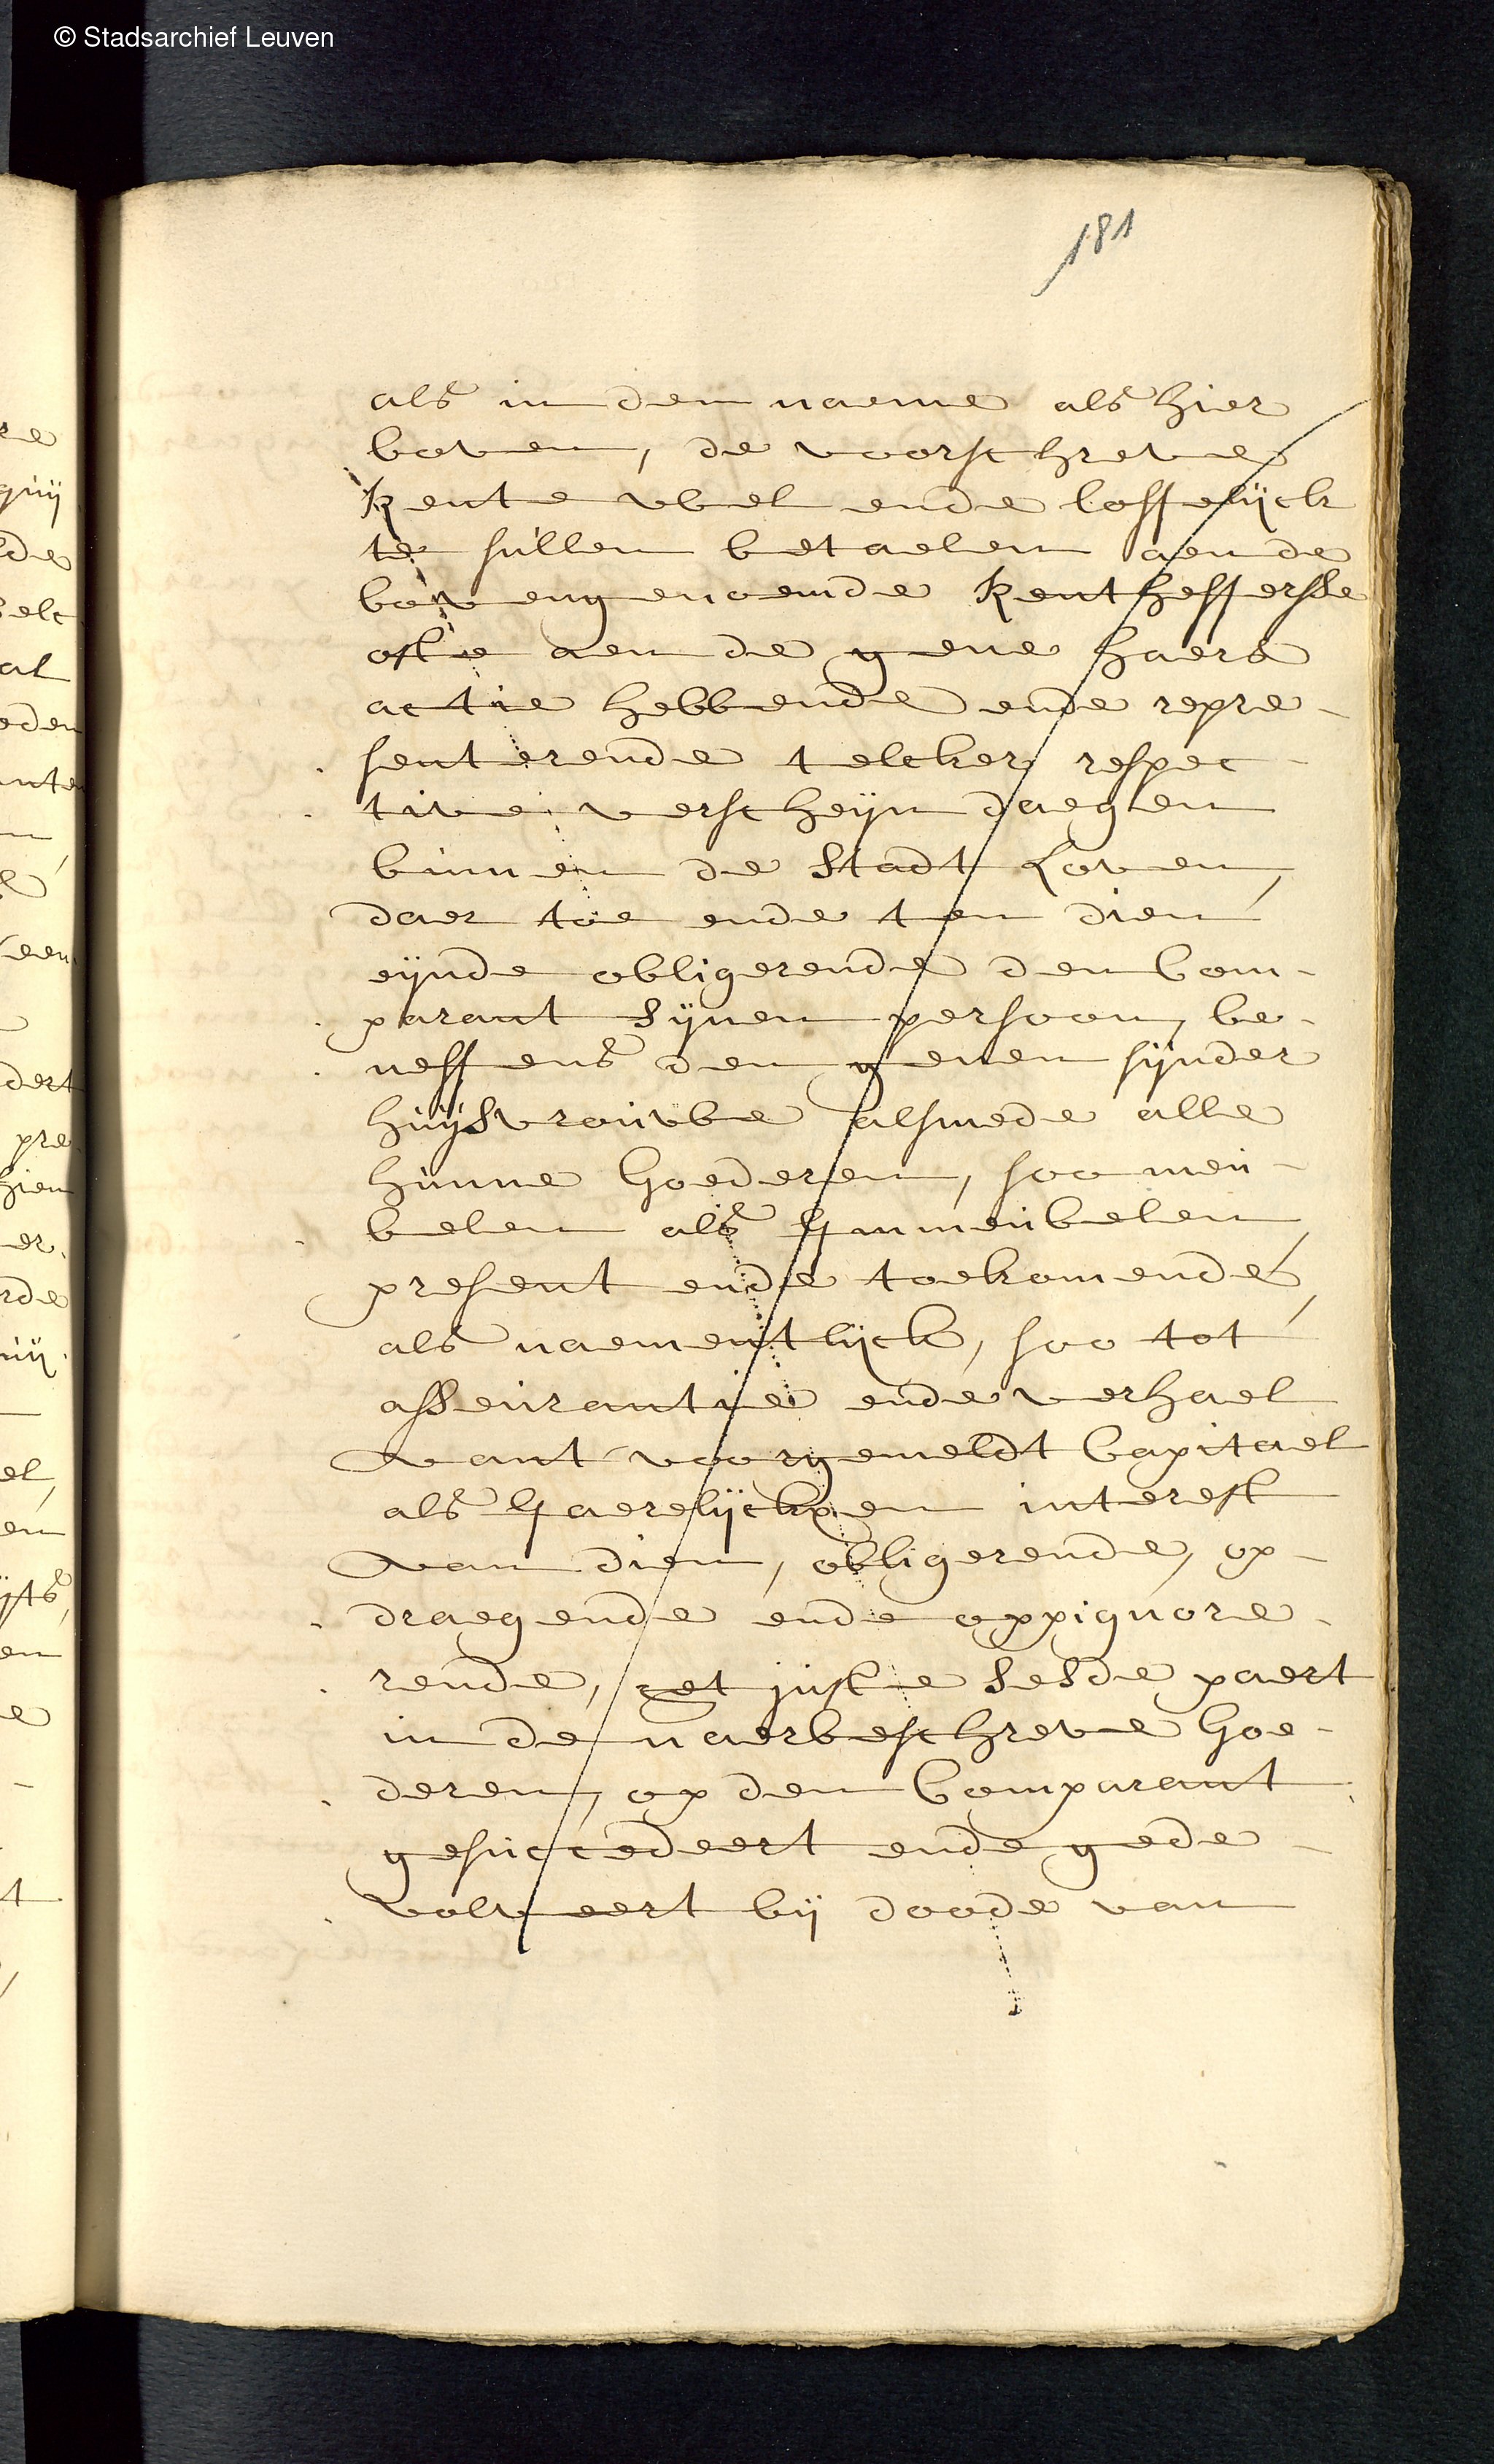 © Stadsarchief Leuven
181
als in den naeme als hier
boven, de voorschreve
Rente wel ende loffelijck
te sullen betaelen aen de
bovengenoemde Rentheffersse
ofte aen de gene haere
actie hebbende ende repre-
senterende telcker respec-
tive verscheijn daegen
binnen de Stadt Loven,
daer toe ende ten dien
eijnde obligerende den Com-
parant Sijnen persoon, be-
neffens den genen sijnder
huijsvrouwe alsmede alle
hunne Goederen, soo meu-
belen als Immeubelen,
present ende toekomende,
als naementlijck, soo tot
asseurantie ende verhael
vant voorgemeldt Capitael
als Jaerelijckxen interest
van dien, obligerende, op-
draegende ende oppignore-
rende, het juste Sesde paert
in de naerbeschreve Goe-
deren, op den Comparant
gesuccedeert ende gede-
volveert bij doode van